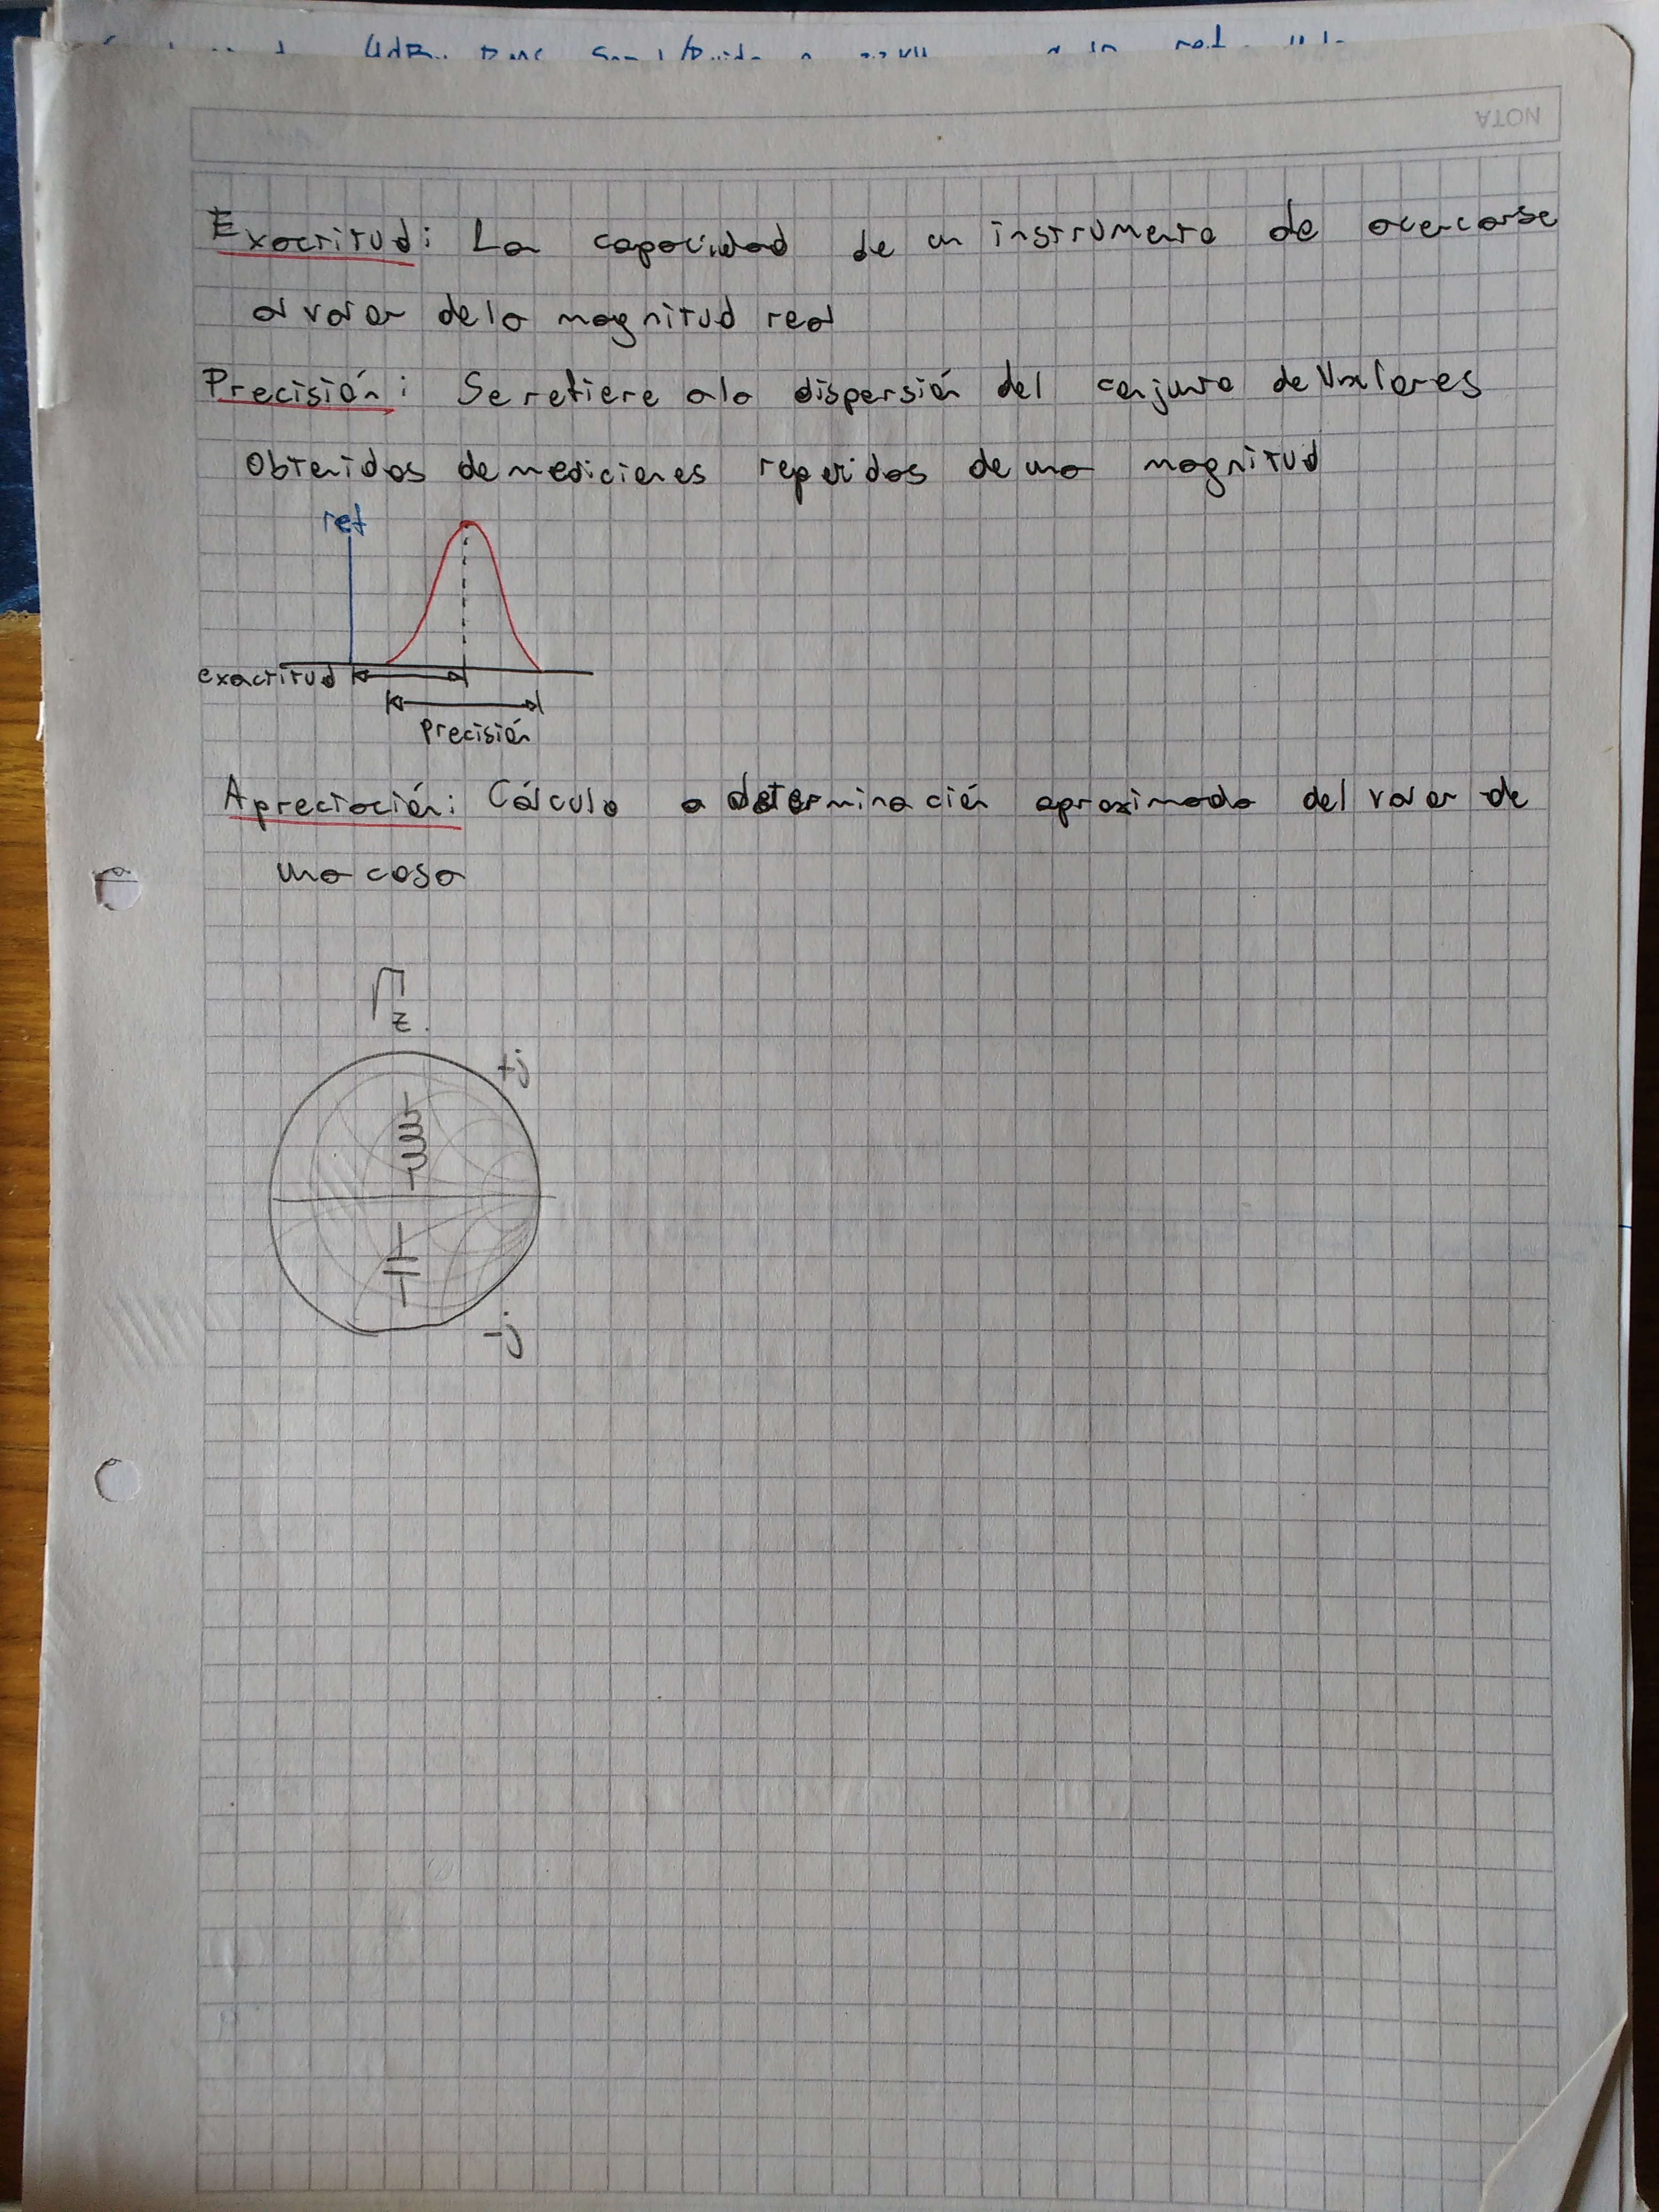 NOTA
Exactitud: La capacidad de un instrumento de acercarse
al valor de la magnitud real
Precisión: Se refiere a la dispersión del conjunto de Valores
Obtenidos de mediciones repetidas de una magnitud
ref
exactitud
Precisión
Apreciación: Cálculo o determinación aproximada del valor de
una cosa
Γz.
+j
-j